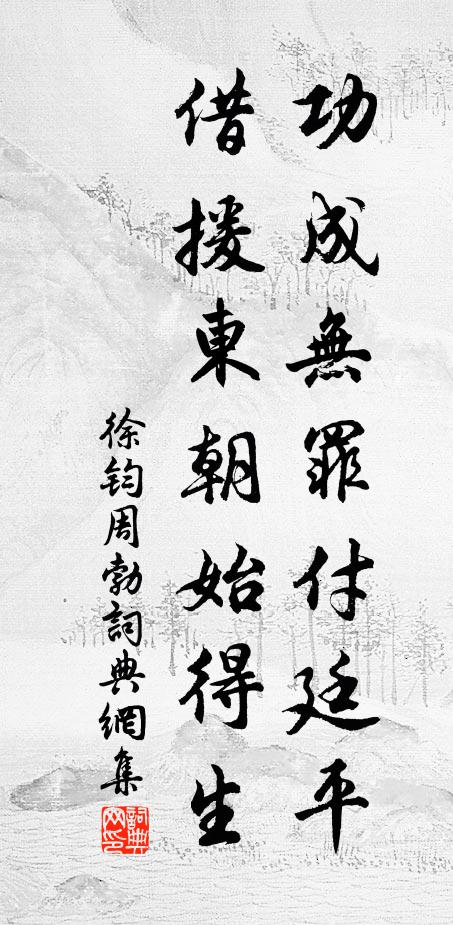 功成無罪付廷平
借援東朝始得生
徐鈞周勃詞典網集
詞典網印